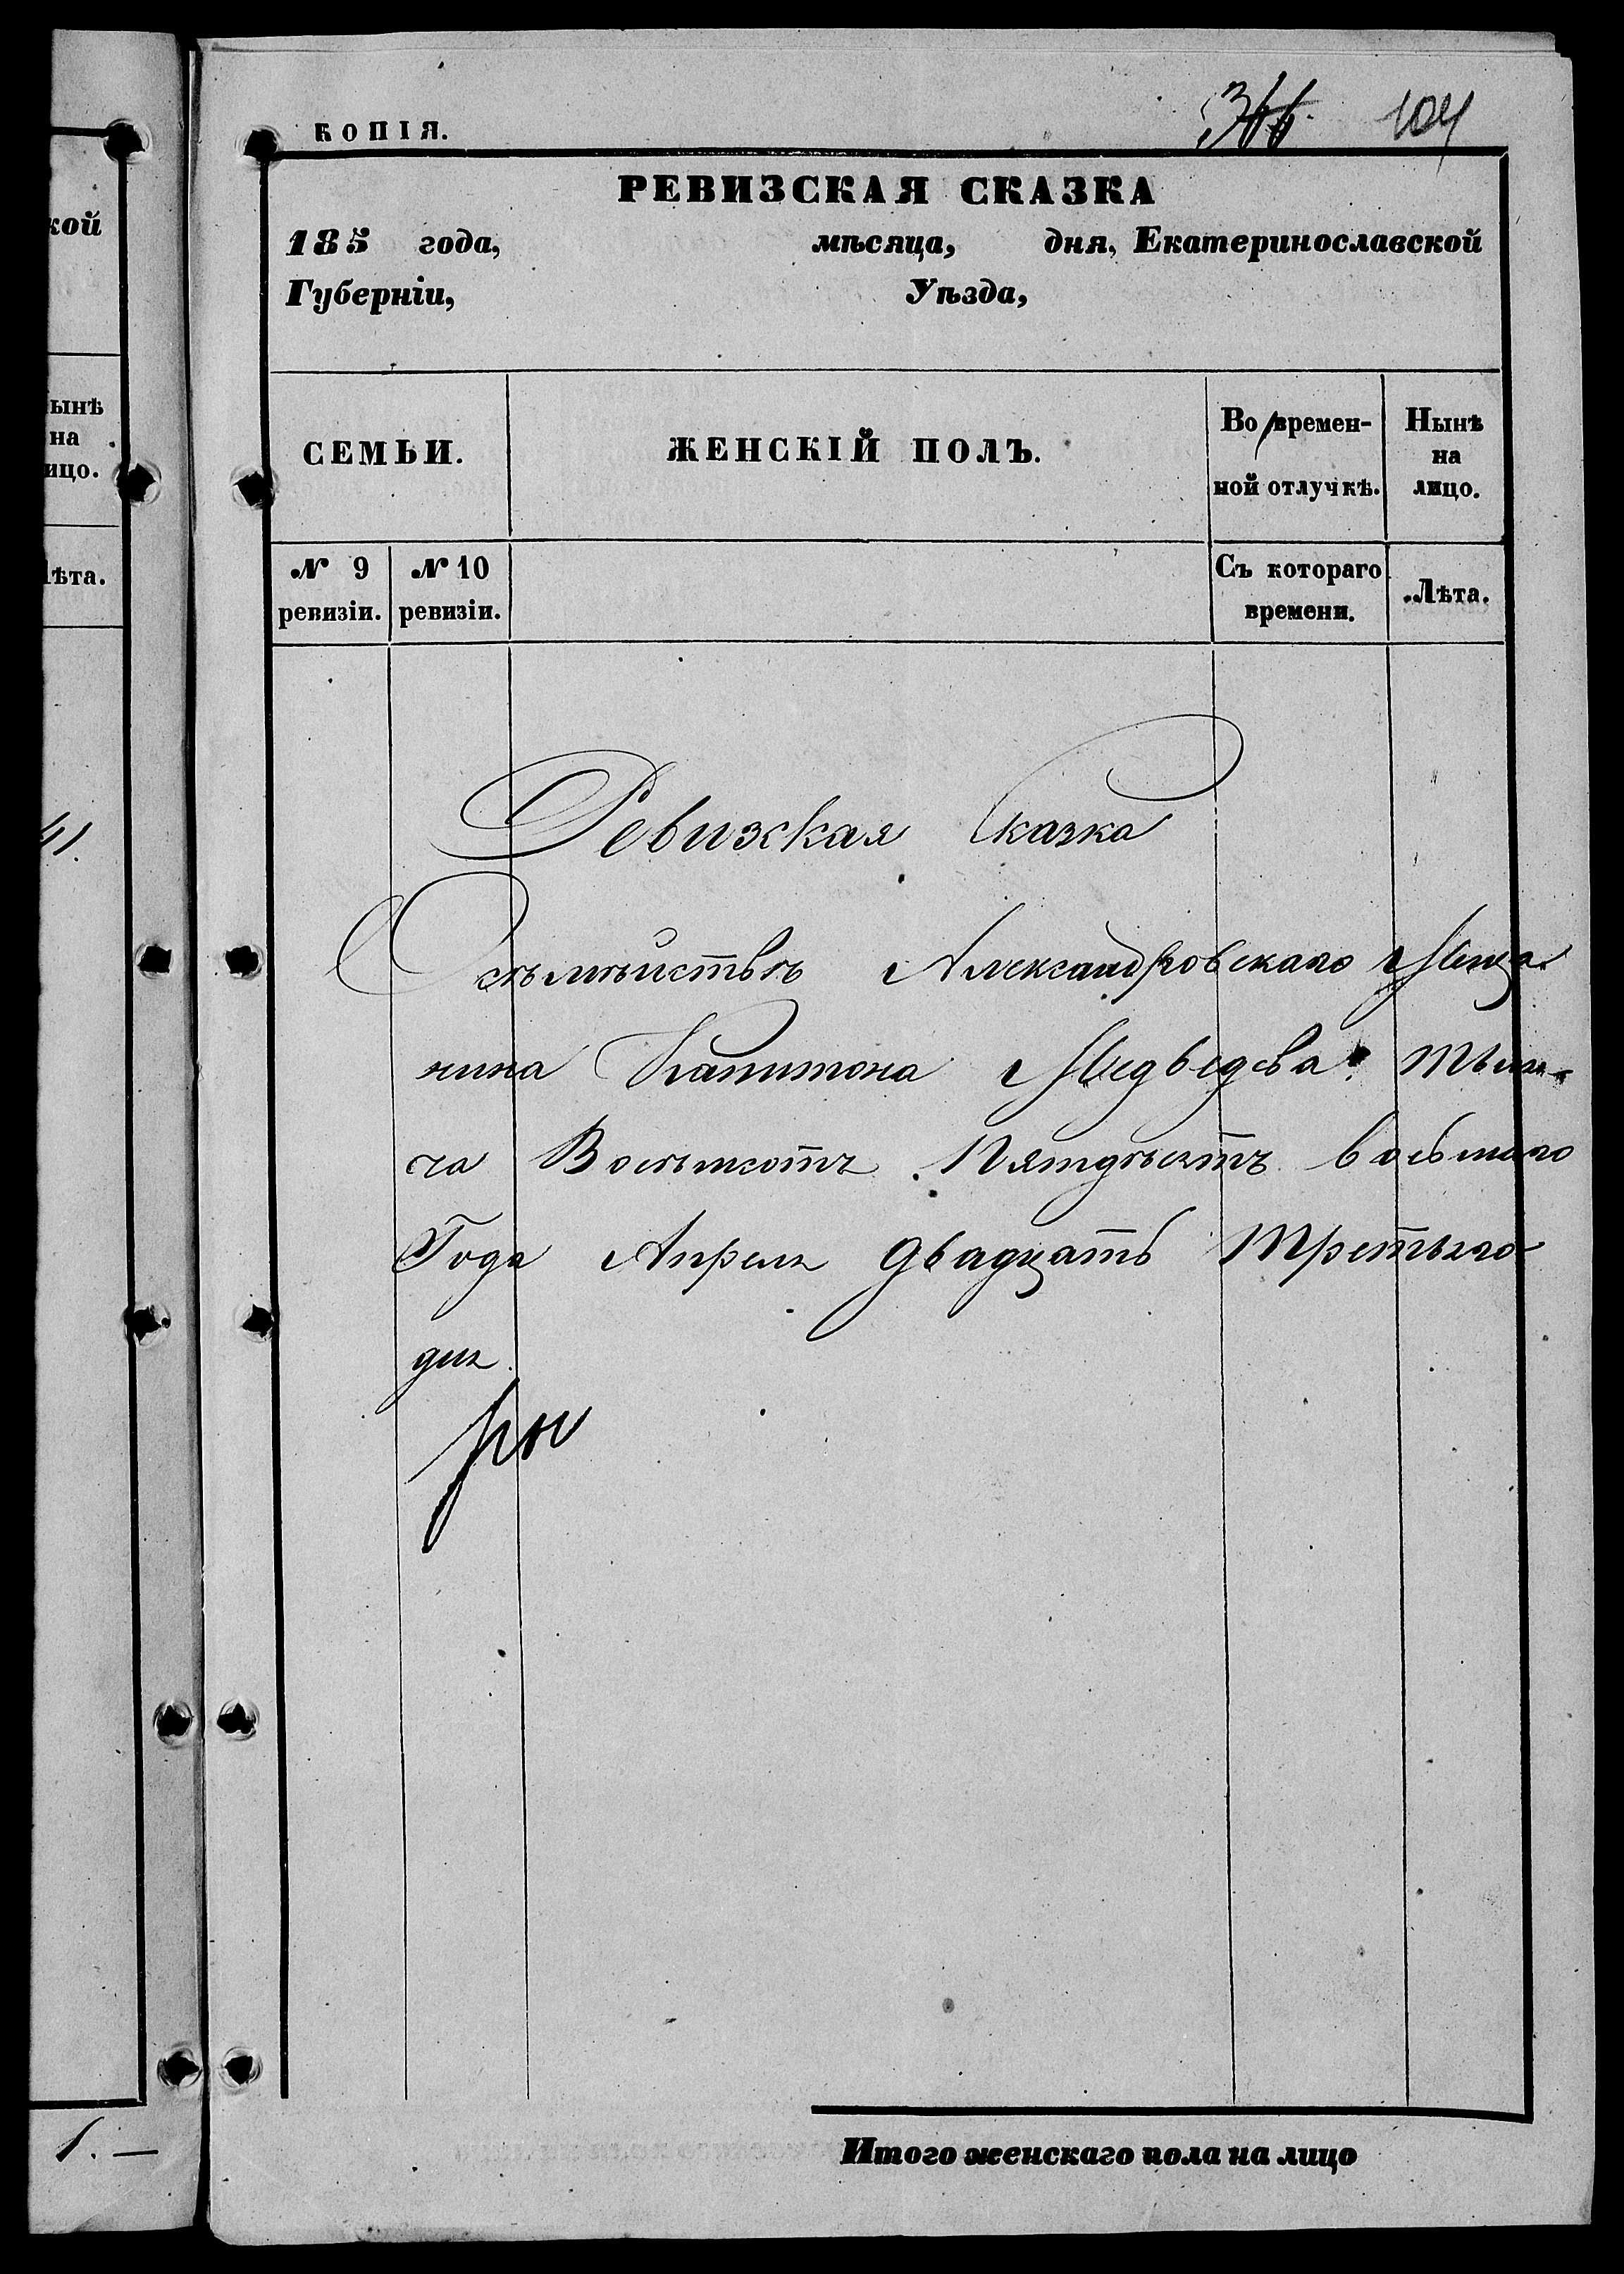 КОПІЯ.
104
РЕВИЗСКАЯ СКАЗКА
185 года, мѣсяца, дня, Екатеринославской
Губерніи, Уѣзда,
СЕМЬИ.
ЖЕНСКІЙ ПОЛЪ.
Во времен-
ной отлучкѣ.
Нынѣ
на
лицо.
№ 9
ревизіи.
№ 10
ревизіи.
Съ котораго
времени.
Лѣта.
Ревизская Сказка
О семѣйствѣ Александровскаго Меща
нина Капитона Медведева Тыся
ча Восѣмсотъ Пятдѣсятъ восьмаго
Года Апреля двадцать Третьяго
дня
Итого женскаго пола на лицо
кой
ынѣ
на
ицо.
ѣта.
41.
1. —